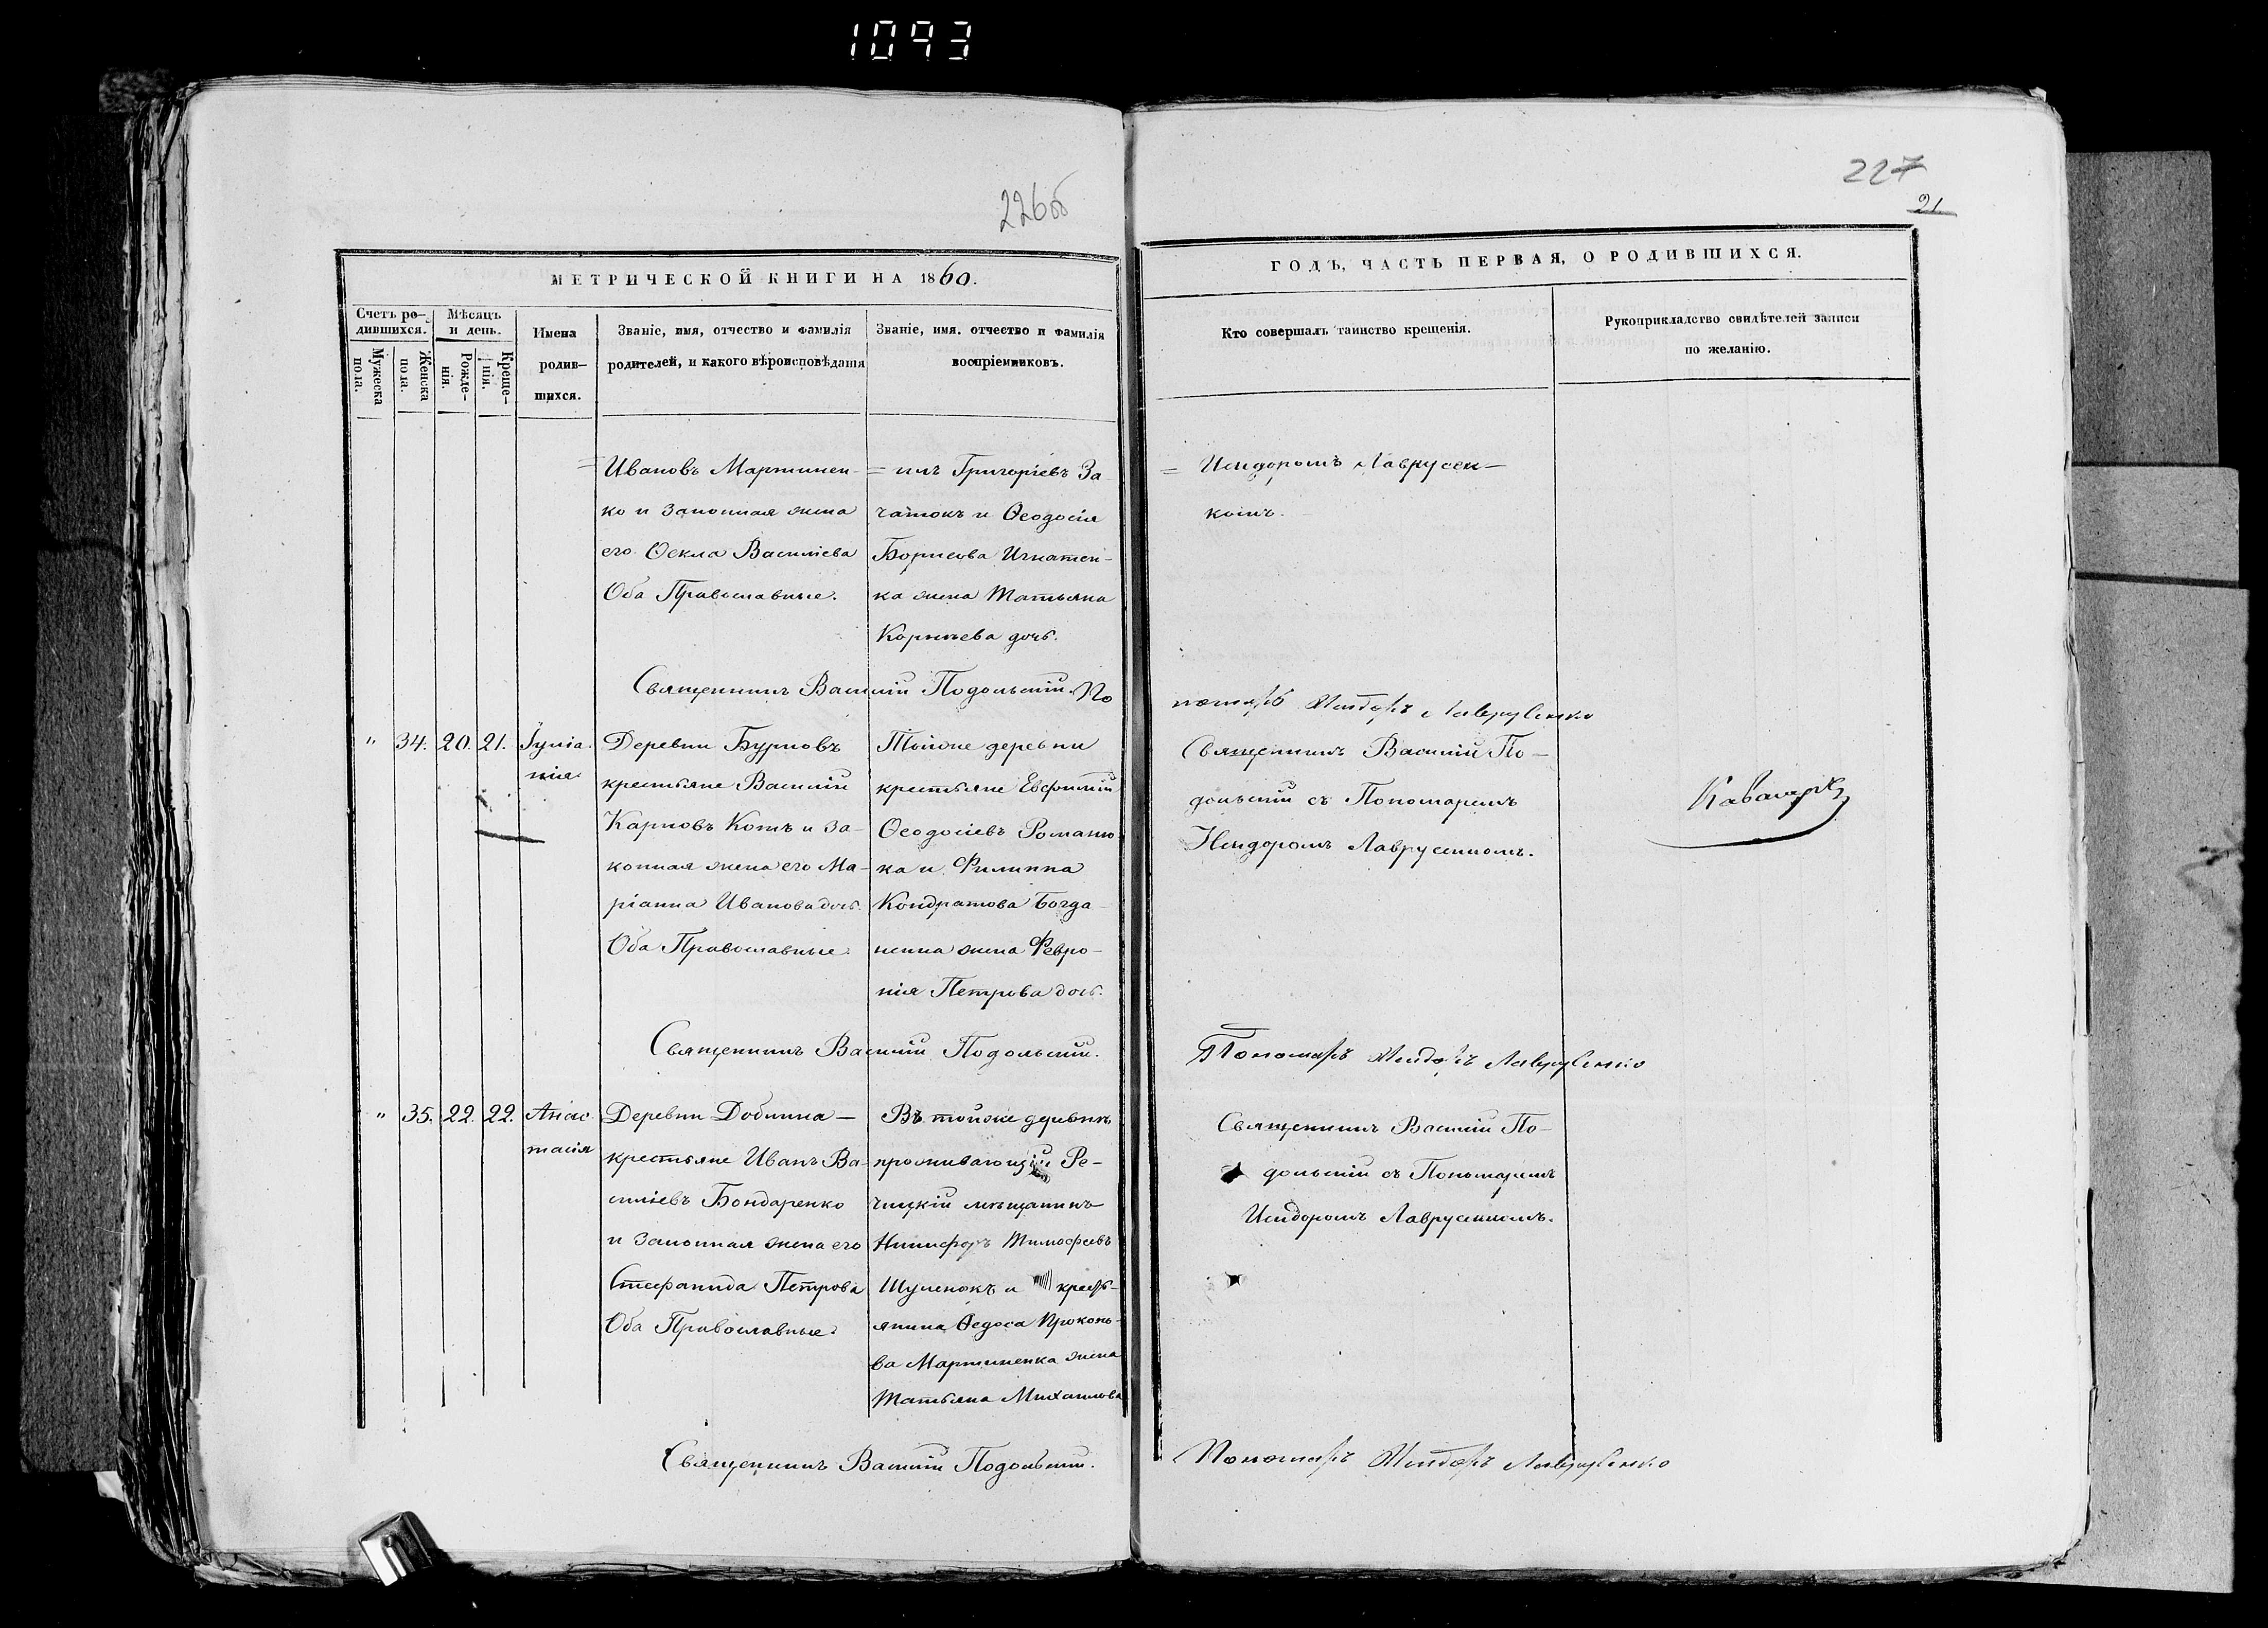 1093
226об
МЕТРИЧЕСКОЙ КНИГИ НА 1860.
Счетъ ро-
дившихся.
Мужеска
пола.
Женска
пола.
Мѣсяцъ
и день.
Рожде-
нія.
Креще-
нія.
Имена
родив-
шихся.
Званіе, имя, отчество и фамилія
родителей, и какого вѣроисповѣданія
Званіе, имя, отчество и фамилія
воспріемниковъ.
= Ивановъ Мартинен-
ко и законная жена
его Ѳекла Василіева
Оба Православные.
= илъ Григоріевъ За
чатокъ и Ѳеодосія
Борисова Игнатен-
ка жена Татьяна
Корнѣева дочь.
Священникъ Василій Подольскій. По
" 34. 20. 21. Іуліа-
нія
Деревни Бурковъ
крестьяне Василій
Карповъ Котъ и за-
конная жена его Ма-
ріанна Иванова дочь.
Оба Православные.
Тойже деревни
крестьяне Евфимій
Ѳеодосіевъ Романю
ка и Филиппа
Кондратова Богда
ненка жена Февро-
нія Петрова дочь.
Священникъ Василій Подольскій.
" 35. 22. 22. Анас
тасія
Деревни Добшина
крестьяне Иванъ Ва-
силіевъ Бондаренко
и законная жена его
Стефанида Петрова
Оба Православные.
Въ тойже деревнѣ
проживающій Ре-
чицкій мѣщанинъ
Никифоръ Тимофеевъ
Шуленокъ и кресть-
янина Ѳедоса Прокопь-
ва Мартиненка жена
Татьяна Михаилова
Священникъ Василій Подольскій.
227
21
ГОДЪ, ЧАСТЬ ПЕРВАЯ, О РОДИВШИХСЯ.
Кто совершалъ таинство крещенія.
Рукоприкладство свидѣтелей записи
по желанію.
= Исидоромъ Лаврусен-
комъ.
номарь Исидоръ Лаврусенко
Священникъ Василій По-
дольскій съ Пономаремъ
Исидоромъ Лаврусенкомъ.
Пономарь Исидоръ Лаврусенко
Священникъ Василій По-
дольскій съ Пономаремъ
Исидоромъ Лаврусенкомъ.
Пономарь Исидоръ Лаврусенко